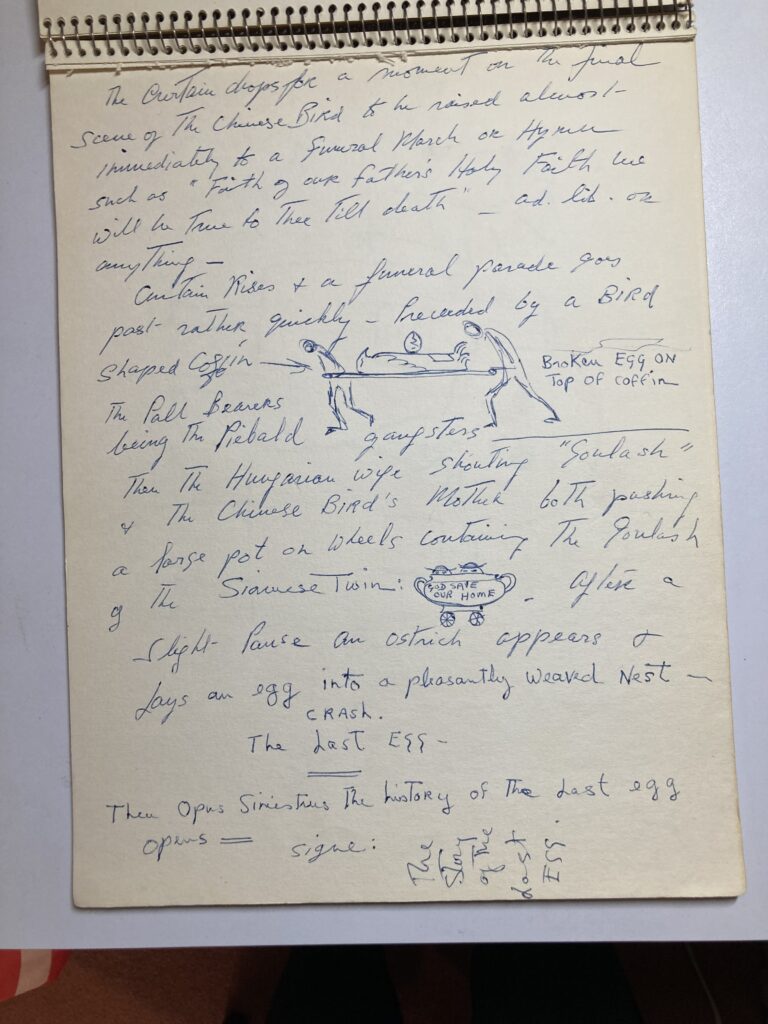 The Curtain drops for a moment on the final
scene of The Chinese Bird to be raised almost
immediately to a Funeral March or Hymn
such as "Faith of our father's Holy Faith we
will be True to Thee Till death" – ad. lib. or
anything –
Curtain Rises & a funeral parade goes
past rather quickly – Preceded by a BIRD
shaped Coffin
Broken EGG ON
Top of coffin
The Pall Bearers
being The Piebald gangsters
Then The Hungarian wife shouting "Goulash"
& The Chinese Bird's Mother both pushing
a large pot on wheels containing The Goulash
of The Siamese Twin:
GOD SAVE
OUR HOME
. After a
slight Pause an ostrich appears &
lays an egg into a pleasantly weaved Nest –
CRASH.
The Last EGG –
Then Opus Siniestrus The history of The Last egg
opens = signe:
The
Story
of The
Last
EGG.